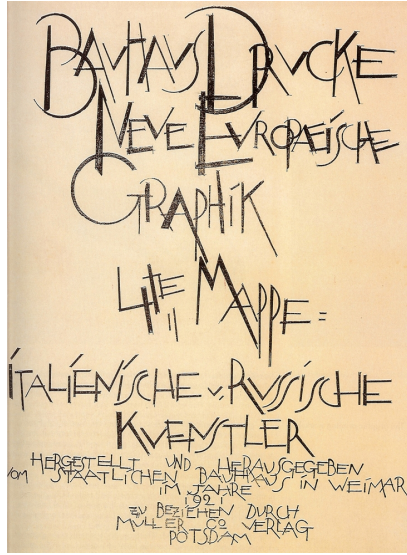 BAUHAUS DRUCKE
NEUE EUROPAEISCHE
GRAPHIK
4TE MAPPE =
iTALiENiSCHE v. RUSSiSCHE
KUENSTLER
HERGESTELLT UND HERAUSGEGEBEN
VOM STAATLICHEN BAUHAUS IN WEIMAR
IM JAHRE
1921
ZU BEZIEHEN DURCH
MÜLLER CO VERLAG
POTSDAM